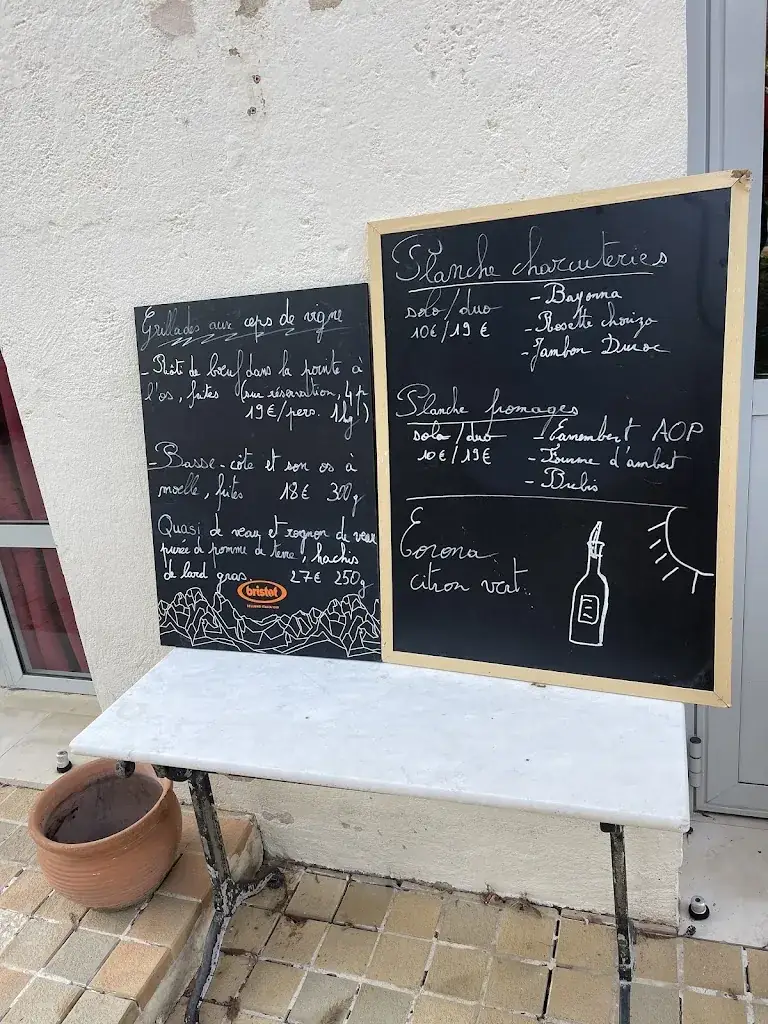 Grillades aux ceps de vigne
- Rôti de bœuf dans la pointe à
l'os, frites (sur réservation, 4 p
19€/pers. 1kg)
- Basse-côte et son os à
moelle, frites 18€ 300g
Quasi de veau et rognon de veau
purée de pomme de terre, hachis
de lard gras. 27€ 250g
bristot
Planche charcuteries
solo/duo - Bayonna
10€/19€ - Rosette chorizo
- Jambon Duroc
Planche fromages
solo/duo - Camembert AOP
10€/19€ - Fourme d'ambert
- Brebis
Corona
citron vert.